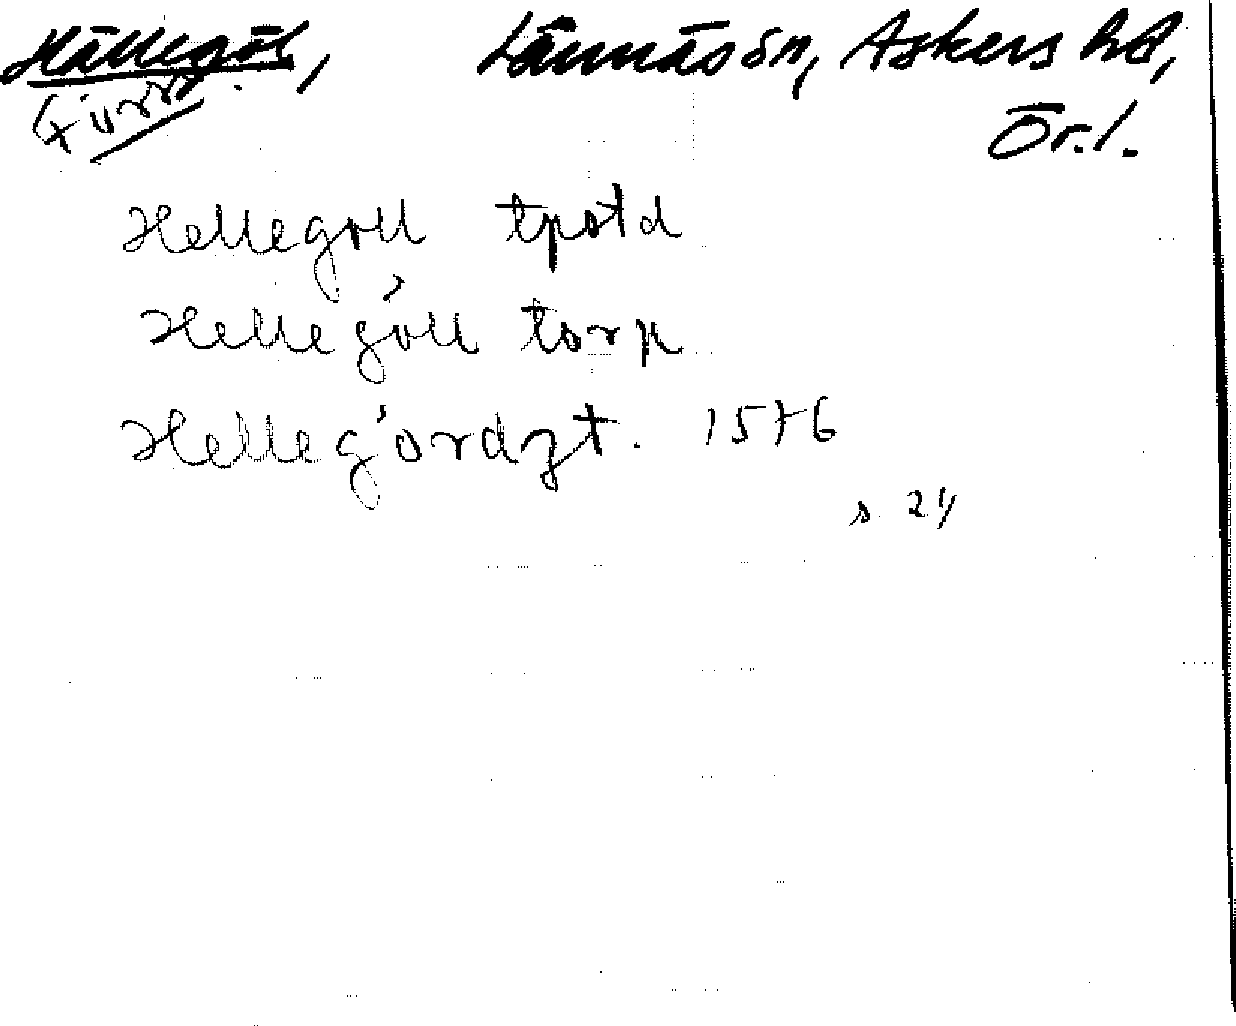 Hällegöl, Lännäs sn, Askers hd,
Förr. Ör. l.
Hellegoll tpstd
Hellegöll torp
Hellegördzt. 1576
s 24